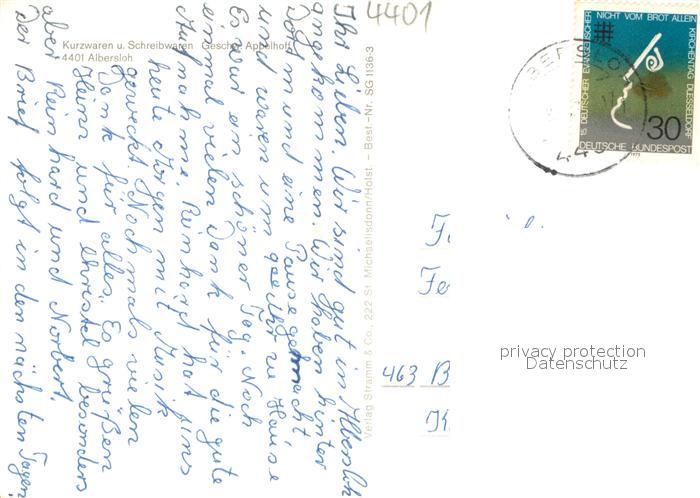 Ihr Lieben. Wir sind gut in Albersloh
angekommen. Wir haben hinter
Dortmund eine Pause gemacht
und waren um Uhr zu Hause
Es war ein schöner Tag. Noch
einmal vielen Dank für die gute
Aufnahme. Reinhard hat uns
heute Morgen mit Musik
geweckt. Nochmals vielen
Dank für alles. Es grüßen
Heinz und Christel besonders
aber Reinhard und Norbert.
Der Brief folgt in den nächsten Tagen!
Kurzwaren u. Schreibwaren Geschw. Appelhoff
4401 Albersloh
Verlag Stramm & Co., 222 St. Michaelisdonn/Holst. – Best.-Nr. SG 1136-3
4401
15. DEUTSCHER EVANGELISCHER KIRCHENTAG DUESSELDORF
NICHT VOM BROT ALLEIN
30
1973
DEUTSCHE BUNDESPOST
463 B
privacy protection
Datenschutz